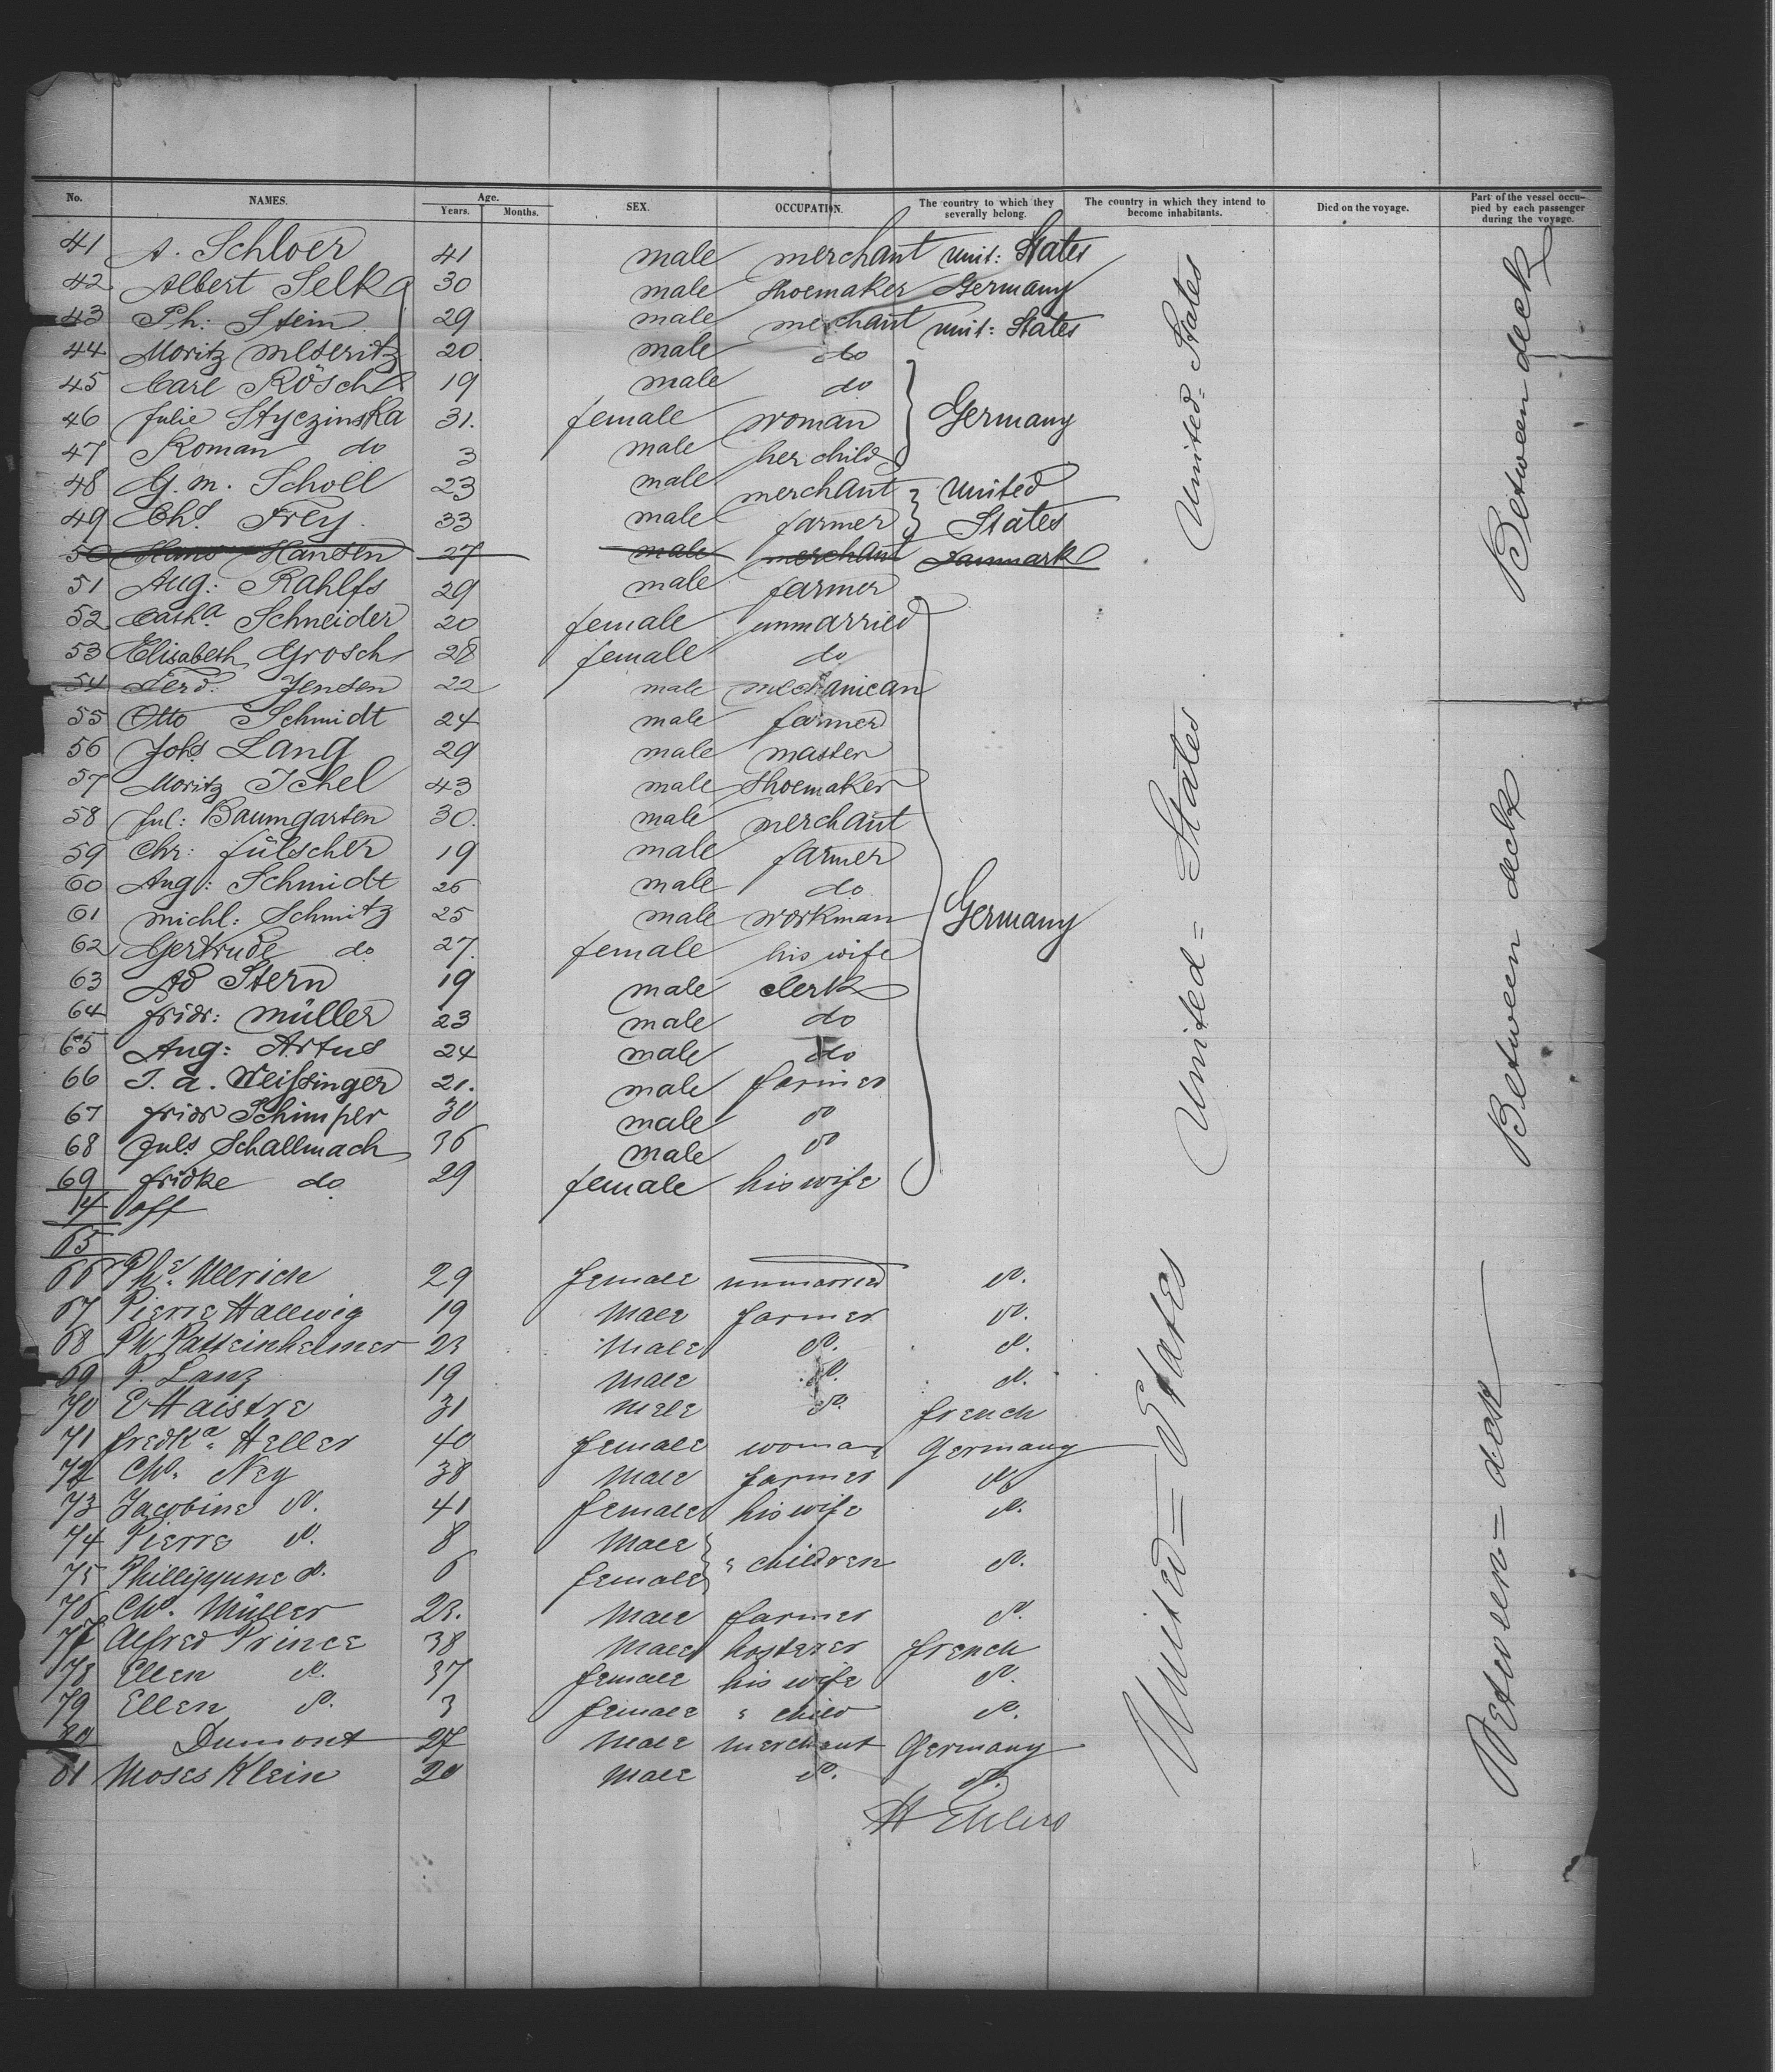 No. NAMES. Age. Years. Months. SEX. OCCUPATION. The country to which they severally belong. The country in which they intend to become inhabitants. Died on the voyage. Part of the vessel occupied by each passenger during the voyage.
41 A. Schloer 41 male merchant Unit: States
42 Albert Selka 30 male Shoemaker Germany
43 Ph: Stein 29 male merchant Unit: States
44 Moritz Meseritz 20 male do
45 Carl Röschl 19 male do
46 Julie Styczinska 31. female woman Germany
47 Roman do 3 male her child
48 G. m. Scholl 23 male merchant United
49 Chs. Frey. 33 male farmer States
50 Hans Hansen 27 male merchant Danmark
51 Aug: Rahlfs 29 male farmer
52 Catha Schneider 20 female unmarried
53 Elisabeth Grosch 28 female do
54 Ferd. Jensen 22 male mechanican
55 Otto Schmidt 24 male farmer
56 Johs. Lang 29 male master
57 Moritz Ichel 43 male Shoemaker
58 Jul: Baumgarten 30. male merchant
59 Chr: Fülscher 19 male farmer
60 Aug: Schmidt 26 male do
61 Michl: Schmitz 25 male workman Germany
62 Gertrude do 27. female his wife
63 Ad Stern 19 male clerk
64 fridr: Müller 23 male do
65 Aug: Artus 24 male do
66 J. A. Weissinger 21. male farmer
67 fridr Schimper 30 male do
68 Juls Schallmach 36 male do
69 fridke do 29 female his wife
14 off
65
66 Phe. Ullrich 29 female unmarried do.
67 Pierre Hallwig 19 male farmer do.
68 Ph Patteinheimer 23 male do. do.
69 P. Lanz 19 male do. do.
70 E Haistre 31 male do. french
71 fredka. Heller 40 female woman Germany
72 Chs. Ney 38 male farmer do
73 Jacobine do. 41 female his wife do.
74 Pierre do. 8 male
" children do.
75 Phillippine do. 6 female
76 Chs. Müller 23. male farmer do.
77 Alfred Prince 38 male french
78 Ellen do. 37 female his wife do.
79 Ellen do. 3 female " child do.
80 Dumont 27 male merchant Germany
81 Moses Klein 20 male do. do.
H Ehlers
United = States
United = States
United = States
Between deck
Between deck
Between = deck